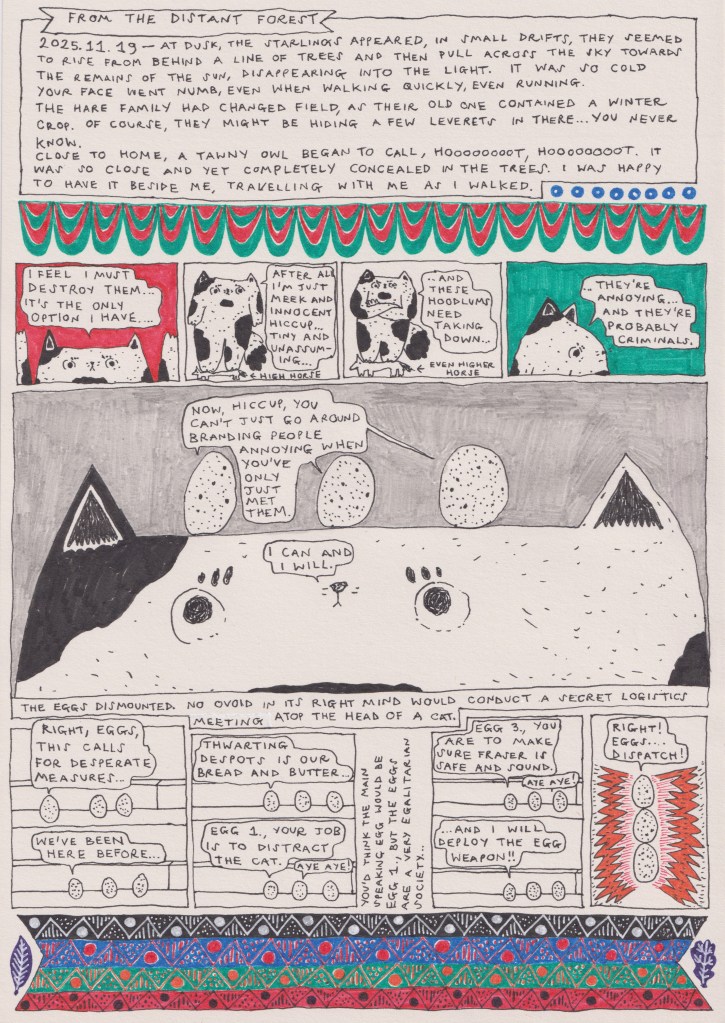 FROM THE DISTANT FOREST
2025.11.19 — AT DUSK, THE STARLINGS APPEARED, IN SMALL DRIFTS, THEY SEEMED
TO RISE FROM BEHIND A LINE OF TREES AND THEN PULL ACROSS THE SKY TOWARDS
THE REMAINS OF THE SUN, DISAPPEARING INTO THE LIGHT. IT WAS SO COLD
YOUR FACE WENT NUMB, EVEN WHEN WALKING QUICKLY, EVEN RUNNING.
THE HARE FAMILY HAD CHANGED FIELD, AS THEIR OLD ONE CONTAINED A WINTER
CROP. OF COURSE, THEY MIGHT BE HIDING A FEW LEVERETS IN THERE...YOU NEVER
KNOW.
CLOSE TO HOME, A TAWNY OWL BEGAN TO CALL, HOOOOOOOT, HOOOOOOOOT. IT
WAS SO CLOSE AND YET COMPLETELY CONCEALED IN THE TREES. I WAS HAPPY
TO HAVE IT BESIDE ME, TRAVELLING WITH ME AS I WALKED.
I FEEL I MUST
DESTROY THEM...
IT'S THE ONLY
OPTION I HAVE....
AFTER ALL
I'M JUST
MEEK AND
INNOCENT
HICCUP...
TINY AND
UNASSUM-
ING...
← HIGH HORSE
...AND
THESE
HOODLUMS
NEED
TAKING
DOWN...
← EVEN HIGHER
HORSE
...THEY'RE
ANNOYING...
AND THEY'RE
PROBABLY
CRIMINALS.
NOW, HICCUP, YOU
CAN'T JUST GO AROUND
BRANDING PEOPLE
ANNOYING WHEN
YOU'VE
ONLY
JUST
MET
THEM.
I CAN AND
I WILL.
THE EGGS DISMOUNTED. NO OVOID IN ITS RIGHT MIND WOULD CONDUCT A SECRET LOGISTICS
MEETING ATOP THE HEAD OF A CAT.
RIGHT, EGGS,
THIS CALLS
FOR DESPERATE
MEASURES...
WE'VE BEEN
HERE BEFORE...
THWARTING
DESPOTS IS OUR
BREAD AND BUTTER...
EGG 1., YOUR JOB
IS TO DISTRACT
THE CAT.
AYE AYE!
YOU'D THINK THE MAIN
SPEAKING EGG WOULD BE
EGG 1., BUT THE EGGS
ARE A VERY EGALITARIAN
SOCIETY...
EGG 3., YOU
ARE TO MAKE
SURE FRASER IS
SAFE AND SOUND.
AYE AYE!
...AND I WILL
DEPLOY THE EGG
WEAPON!!
RIGHT!
EGGS....
DISPATCH!